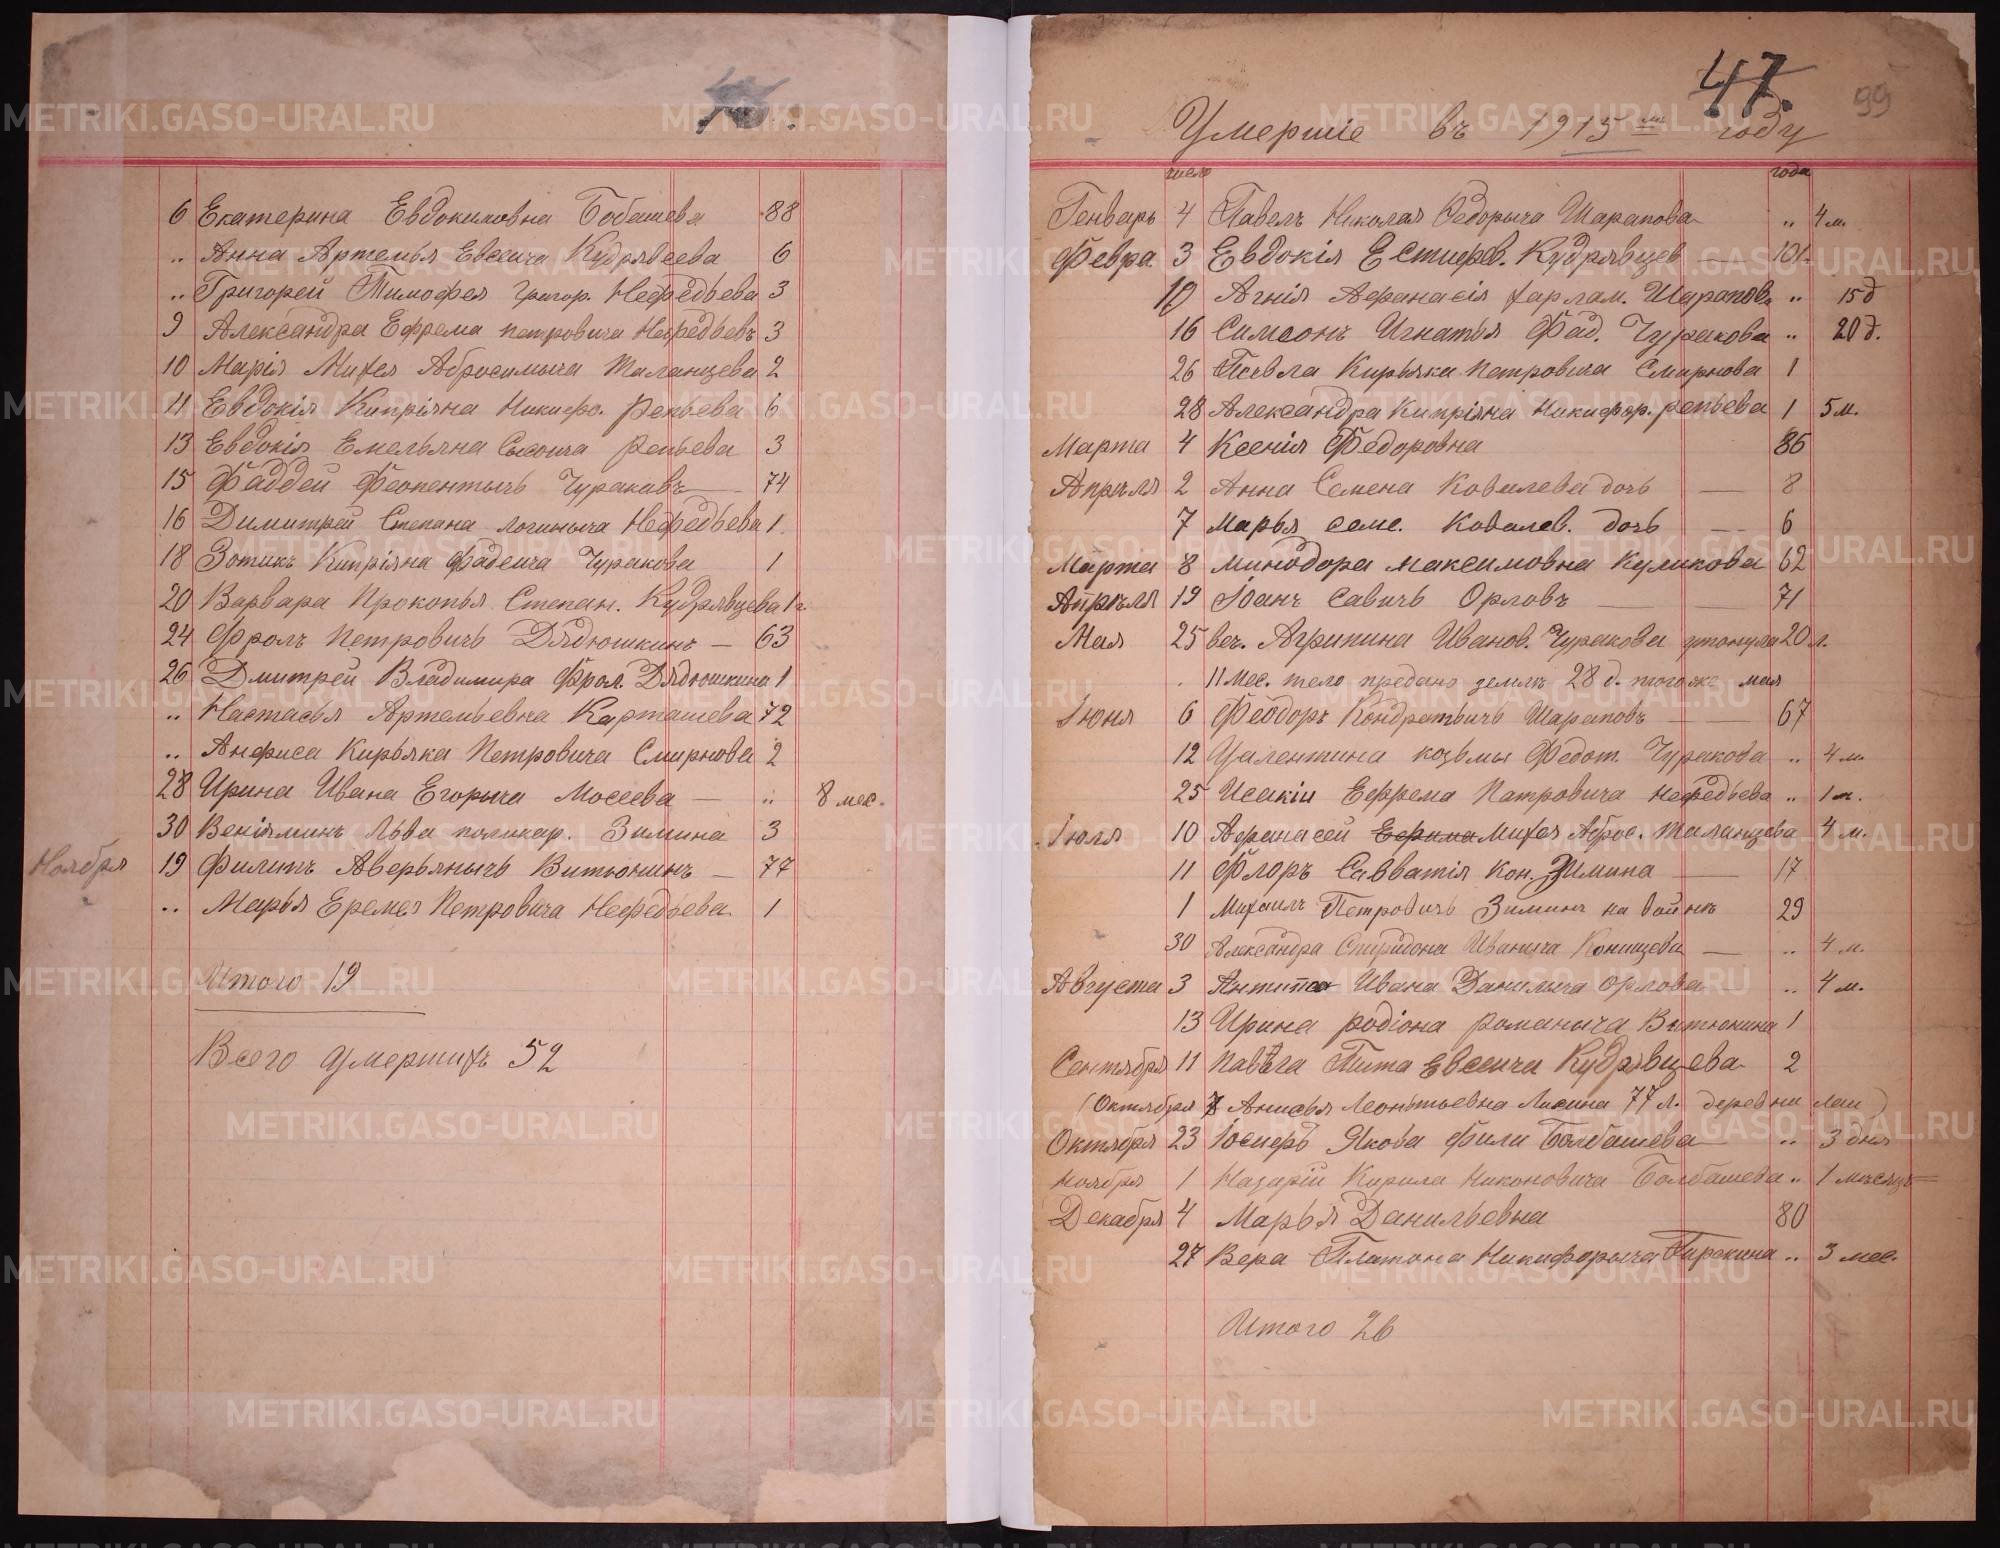 6 Екатерина Евдокимовна Бобашева 88
.. Анна Артемья Евсеича Кудрявсева 6
.. Григорей Тимофея Григор. Нефедьева 3
9 Александра Ефрема петровича Нефедьевъ 3
10 Марія Михея Абросимыча Таланцева 2
11 Евдокія Кипріяна Никифо. Репьева 6
13 Евдокія Емельяна Сысоича Репьева 3
15 Фаддей Феопентычь Чураковъ — 74
16 Димитрей Степана логиныча Нефедьева 1
18 Зотикъ Кипріяна Фадеича Чуракова 1
20 Варвара Прокопья Степан. Кудрявцева 1 г.
24 Фролъ Петровичь Дядюшкинъ — 63
26 Дмитрей Владимира Фрол. Дядюшкина 1
.. Настасья Артемьевна Карташева 72
.. Анфиса Кирьяка Петровича Смирнова 2
28 Ирина Ивана Егорыча Мосеева — .. 8 мес.
30 Веніяминъ Льва поликар. Зимина 3
Ноября 19 Филипъ Аверьянычь Витюнинъ — 77
.. Марья Еремея Петровича Нефедьева. 1
Итого 19
Всего умершихъ 52
47. 99
Умершіе въ 1915 мъ году
число года
Генварь 4 Павелъ Николая Федорыча Шарапова .. 4 м.
Февра. 3 Евдокія Естифѣ. Кудрявцев — 101.
10 Агнія Афанасія харлам. Шарапова .. 15 д
16 Симеонъ Игнатья Фад. Чуракова .. 20 д.
26 Павла Кирьяка Петровича Смирнова 1
28 Александра Кипріяна Никифор. репьева 1 5 м.
Марта 4 Ксенія Федоровна 86
Апреля 2 Анна Семена Ковалева дочь — 8
7 Марья семе. Ковалев. дочь — 6
Марта 8 Минодора максимовна Куликова 62
Апреля 19 Іоанъ Савичь Орловъ — 71
Мая 25 веч. Агрипина Иванов. Чуракова утонула 20 л.
11 Мес. тело предано земле 28 д. тогоже мая
Іюня 6 Феодоръ Кондратьичь Шараповъ — 67
12 Уалентина козьмы Федот. Чуракова .. 4 м.
25 Исакіи Ефрема Патровича Нефедьева .. 1 м.
Іюля 10 Афанасей Ефрима Михея Аброс. Таланцева 4 м.
11 Флоръ Савватія Кон. Зимина — 17
1 Михаилъ Петровичь Зиминъ на войне 29
30 Александра Спиридона Иваныча Конищева — .. 4 м.
Августа 3 Антипа Ивана Данилыча Орлова .. 4 м.
13 Ирина родіона романыча Витюнина 1
Сентября 11 Павъла Тита Евсеича Кудрявцева 2
(Октября 7 Анисья Леонтьевна Лисина 77 л. деревни лаи)
Октября 23 Іосифъ Якова фили Болбашева .. 3 дня
Ноября 1 Назарій Кирила Никоновича Болбашева .. 1 месяцъ
Декабря 4 Марья Данильевна 80
27 Вера Платона Никифорыча Пирокина .. 3 мес.
Итого 26
METRIKI.GASO-URAL.RU